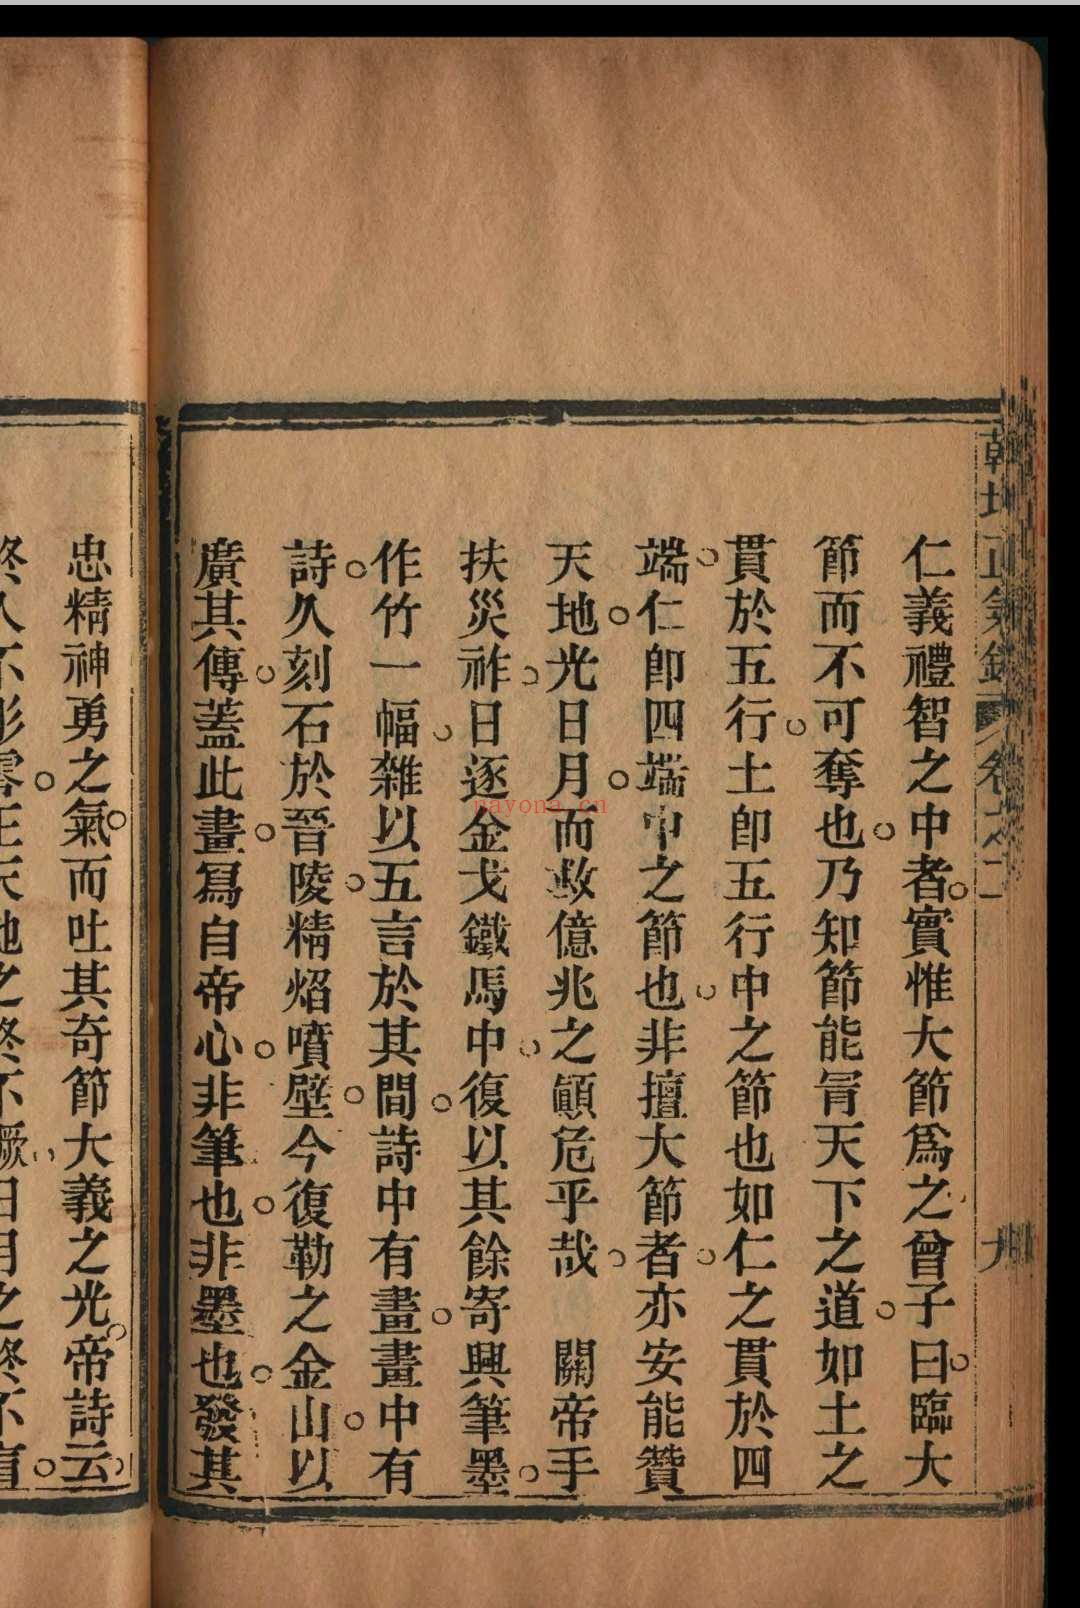 仁義禮智之中者實惟大節爲之曾子曰臨大
節而不可奪也乃知節能冐天下之道如土之
貫於五行土卽五行中之節也如仁之貫於四
端仁卽四端中之節也非擅大節者亦安能贊
天地光日月而救億兆之顚危乎哉　關帝手
扶災祚日逐金戈鐵馬中復以其餘寄興筆墨
作竹一幅雜以五言於其間詩中有畫畫中有
詩久刻石於晉陵精焰噴壁今復勒之金山以
廣其傳蓋此畫寫自帝心非筆也非墨也發其
忠精神勇之氣而吐其奇節大義之光帝詩云
nayona.cn